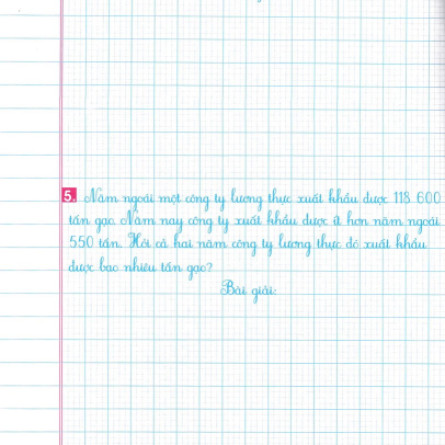 5. Năm ngoái một công ty lương thực xuất khẩu được 118 600
tấn gạo. Năm nay công ty xuất khẩu được ít hơn năm ngoái
550 tấn. Hỏi cả hai năm công ty lương thực đó xuất khẩu
được bao nhiêu tấn gạo?
Bài giải: